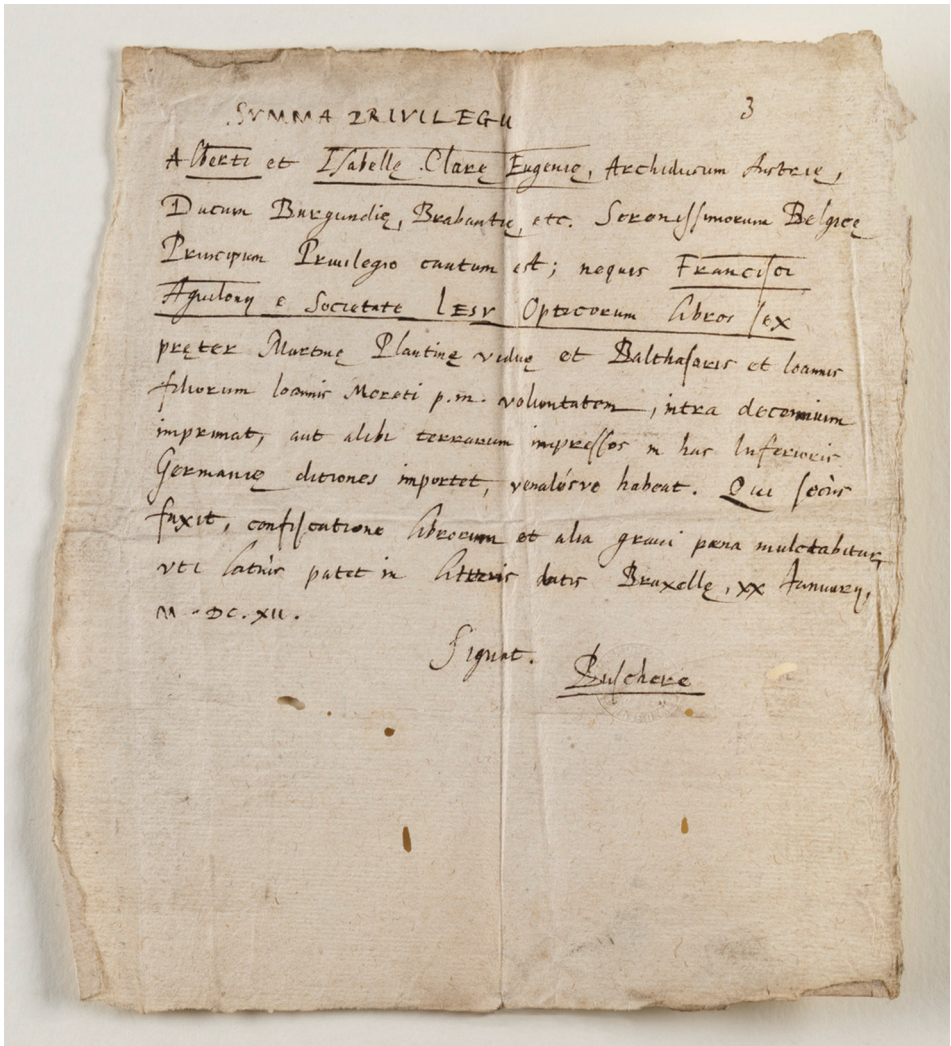 SVMMA PRIVILEGII 3
Alberti et Isabellę Clarę Eugenię, Archiducum Austrię,
Ducum Burgundię, Brabantię, etc. Serenissimorum Belgicę
Principum Priuilegio cautum est; nequis Francisci
Aguilonij e Societate Iesv Opticorum libros sex
pręter Martinę Plantinę viduę et Balthasaris et Ioannis
filiorum Ioannis Moreti p.m. voluntatem, intra decennium
imprimat, aut alibi terrarum impressos in has Inferioris
Germanię ditiones importet, venalésve habeat. Qui secùs
faxit, confiscatione librorum et alia graui pœna mulctabitur,
vti latiùs patet in litteris datis Bruxellę, xx Ianuarij,
M.DC.XII.
Signat.
Buschere